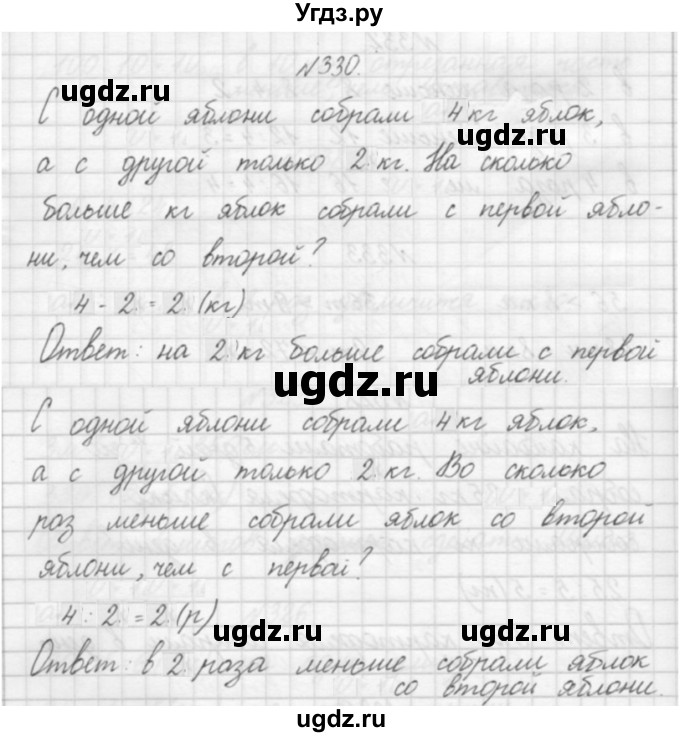 Угдз.ру
№330.
С одной яблони собрали 4 кг яблок,
а с другой только 2 кг. На сколько
больше кг яблок собрали с первой ябло-
ни, чем со второй?
4 - 2 = 2 (кг)
Ответ: на 2 кг больше собрали с первой
яблони.
С одной яблони собрали 4 кг яблок,
а с другой только 2 кг. Во сколько
раз меньше собрали яблок со второй
яблони, чем с первой?
4 : 2 = 2 (р)
Ответ: в 2 раза меньше собрали яблок
со второй яблони.
ugdz.ru
ugdz.ru
ugdz.ru
ugdz.ru
ugdz.ru
ugdz.ru